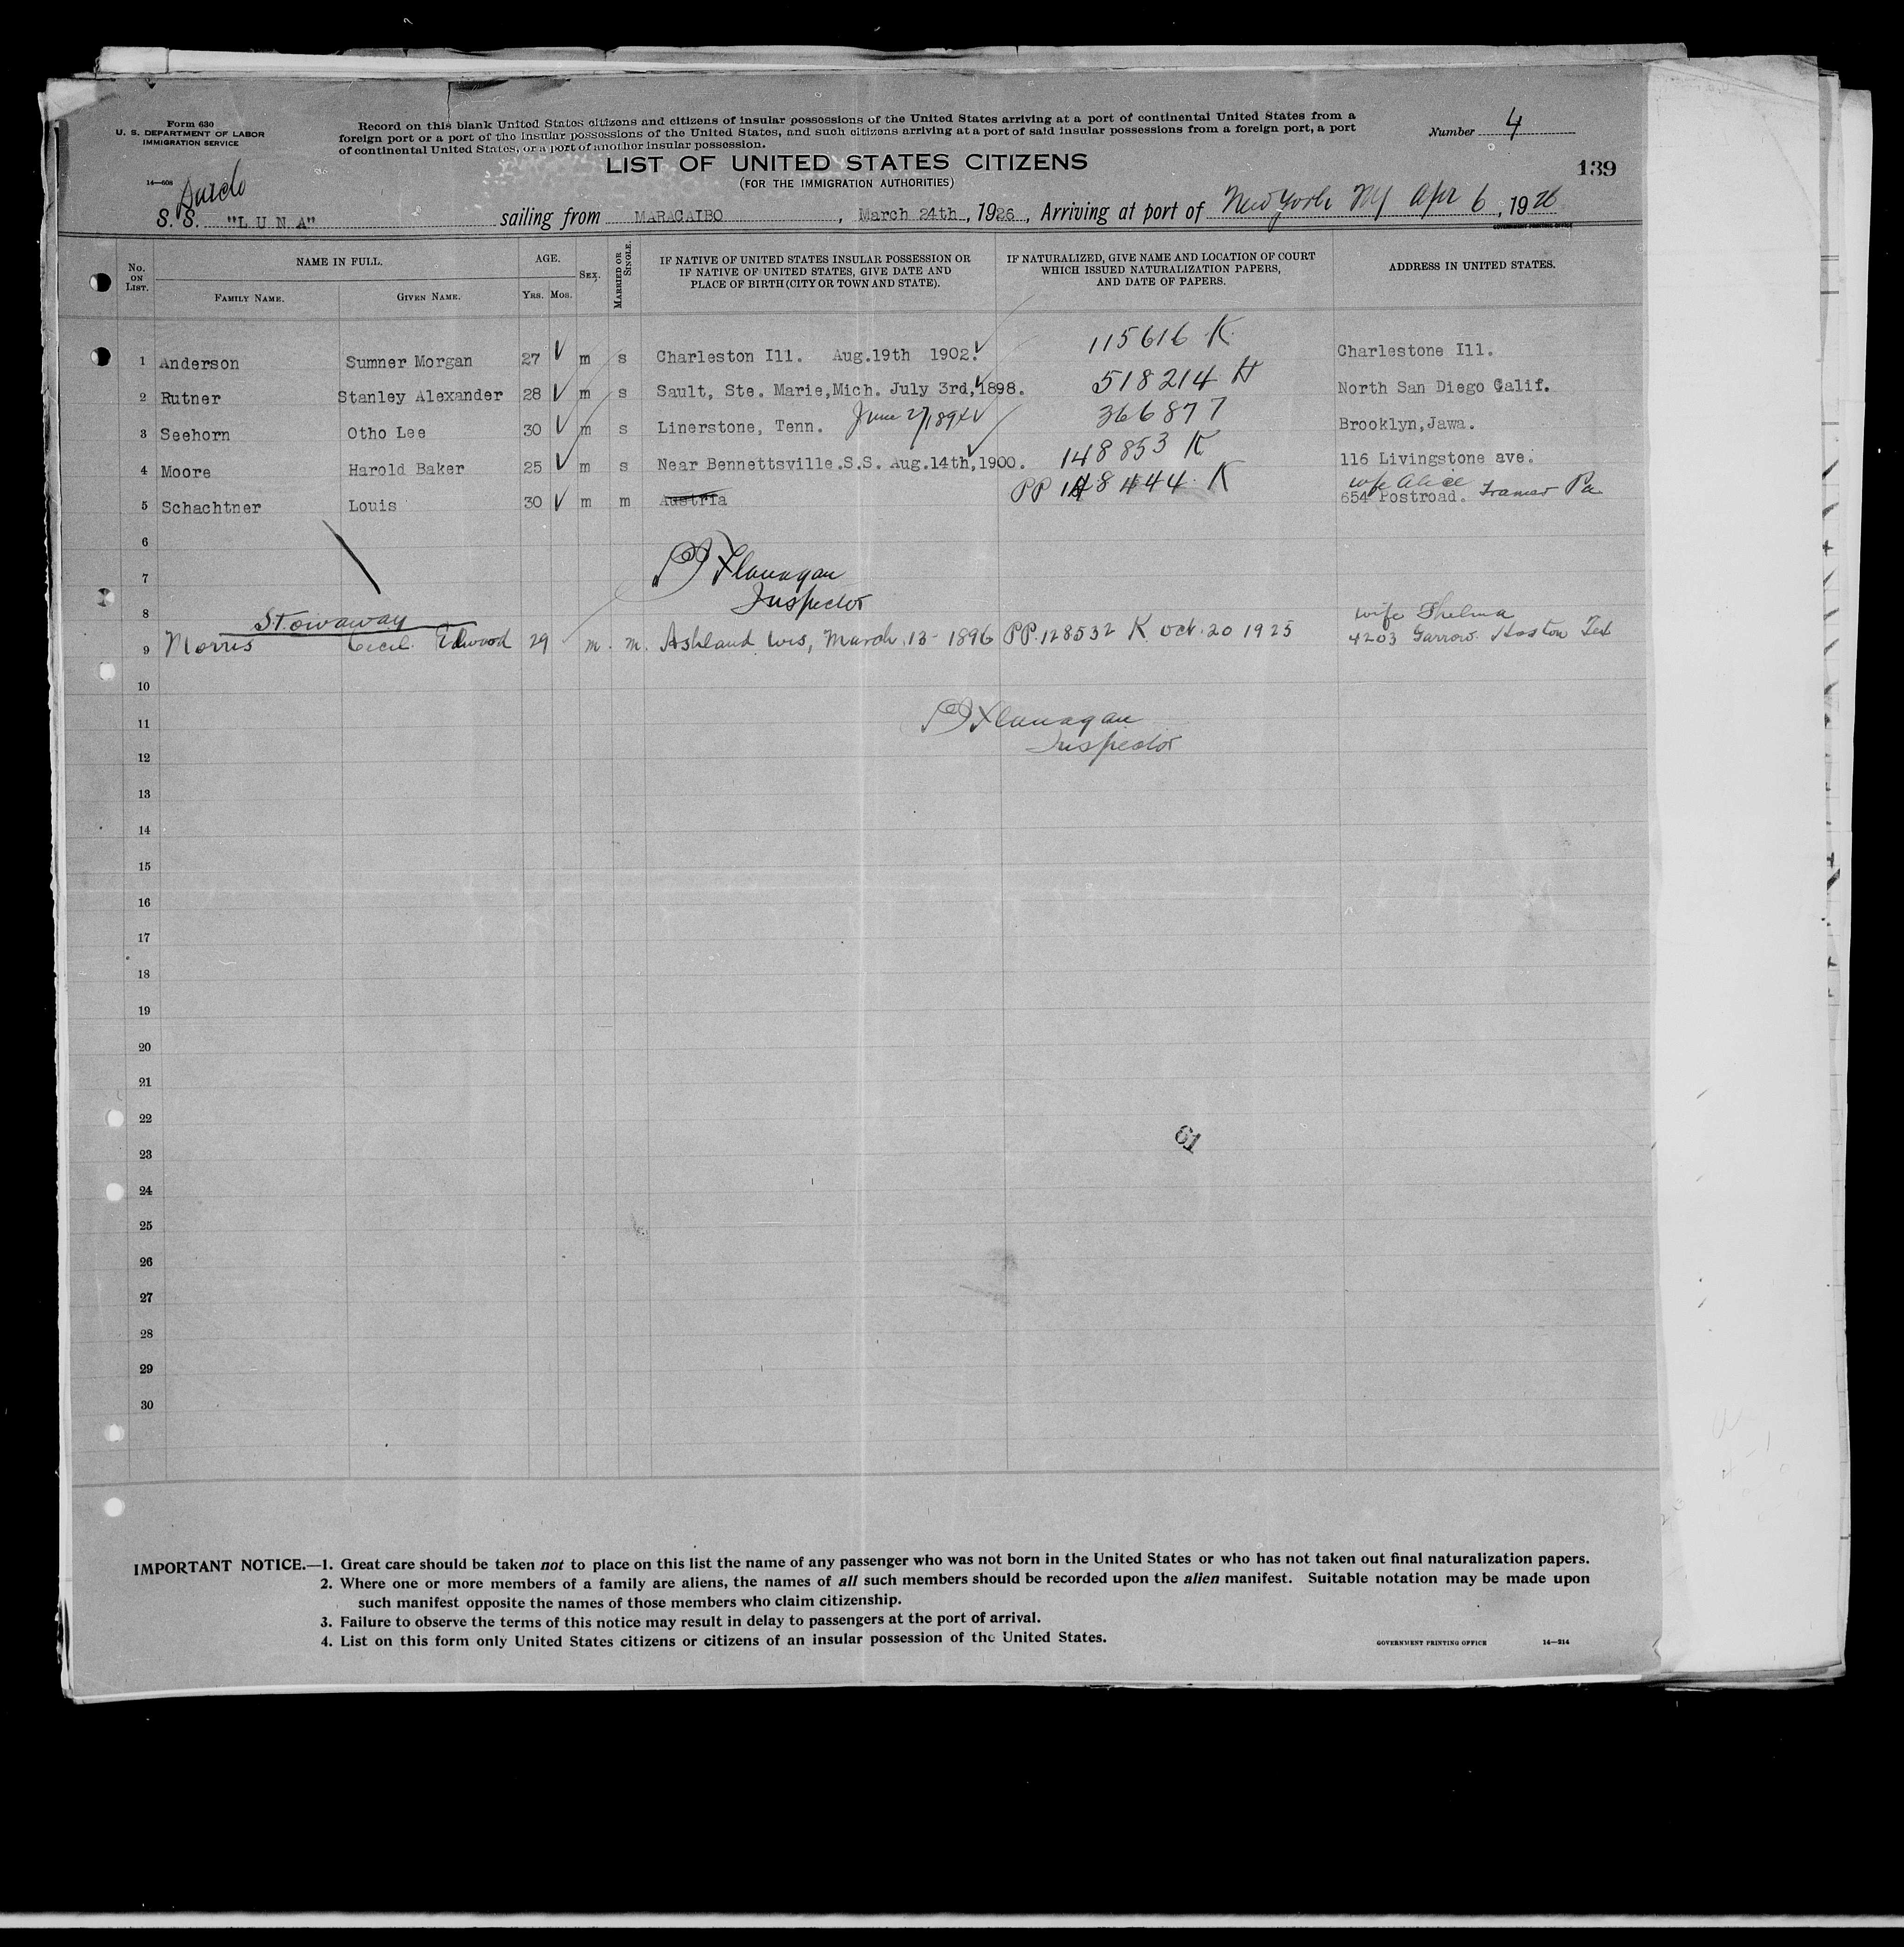 Form 630
U. S. DEPARTMENT OF LABOR
IMMIGRATION SERVICE
Record on this blank United States citizens and citizens of insular possessions of the United States arriving at a port of continental United States from a
foreign port or a port of the insular possessions of the United States, and such citizens arriving at a port of said insular possessions from a foreign port, a port
of continental United States, or a port of another insular possession.
Number 4
LIST OF UNITED STATES CITIZENS
(FOR THE IMMIGRATION AUTHORITIES)
139
14—608
S. S. "L U N A" sailing from MARACAIBO, March 24th, 1926, Arriving at port of New York NY Apr 6, 1926
GOVERNMENT PRINTING OFFICE
No. ON LIST. NAME IN FULL. AGE. SEX. MARRIED OR SINGLE. IF NATIVE OF UNITED STATES INSULAR POSSESSION OR IF NATIVE OF UNITED STATES, GIVE DATE AND PLACE OF BIRTH (CITY OR TOWN AND STATE). IF NATURALIZED, GIVE NAME AND LOCATION OF COURT WHICH ISSUED NATURALIZATION PAPERS, AND DATE OF PAPERS. ADDRESS IN UNITED STATES.
FAMILY NAME. GIVEN NAME. YRS. MOS.
1 Anderson Sumner Morgan 27 m s Charleston Ill. Aug.19th 1902. 115616 K Charlestone Ill.
2 Rutner Stanley Alexander 28 m s Sault, Ste. Marie,Mich. July 3rd,1898. 518214 H North San Diego Calif.
3 Seehorn Otho Lee 30 m s Linerstone, Tenn. June 27, 366877 Brooklyn,Jawa.
4 Moore Harold Baker 25 m s Near Bennettsville.S.S. Aug.14th,1900. 148853 K 116 Livingstone ave.
wife Alice
5 Schachtner Louis 30 m m Austria PP K 654 Postroad. Pa
6
P J Flanagan
7
Inspector
8
Stowaway
wife Thelma
9 Morris Cecil Edwood 29 m. m. Ashland Wis, March 13- 1896 PP.128532 K Oct. 20 1925 4203 Garrow. Hoston Tex
10
P J Flanagan
11
Inspector
12
13
14
15
16
17
18
19
20
21
22
61
23
24
25
26
27
28
29
30
IMPORTANT NOTICE.—1. Great care should be taken not to place on this list the name of any passenger who was not born in the United States or who has not taken out final naturalization papers.
2. Where one or more members of a family are aliens, the names of all such members should be recorded upon the alien manifest. Suitable notation may be made upon
such manifest opposite the names of those members who claim citizenship.
3. Failure to observe the terms of this notice may result in delay to passengers at the port of arrival.
4. List on this form only United States citizens or citizens of an insular possession of the United States.
GOVERNMENT PRINTING OFFICE 14—214